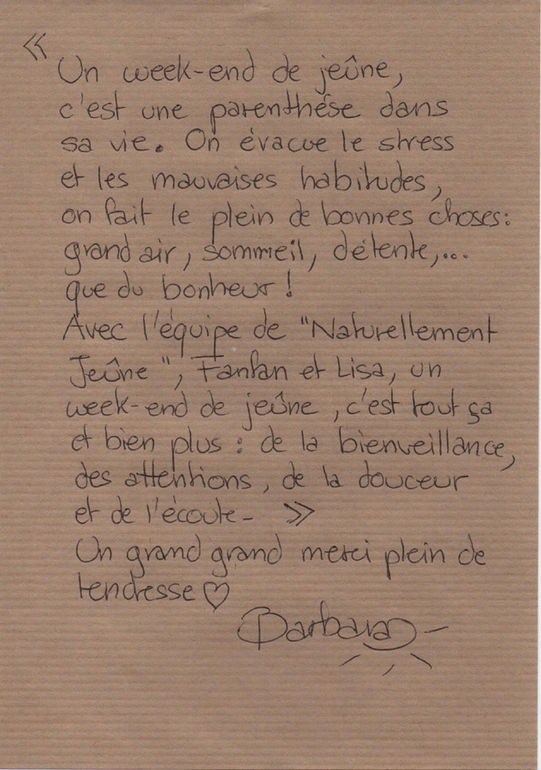 « Un week-end de jeûne,
c'est une parenthèse dans
sa vie. On évacue le stress
et les mauvaises habitudes,
on fait le plein de bonnes choses :
grand air, sommeil, détente,...
que du bonheur !
Avec l'équipe de "Naturellement
Jeûne", Fanfan et Lisa, un
week-end de jeûne, c'est tout ça
et bien plus : de la bienveillance,
des attentions, de la douceur
et de l'écoute - »
Un grand grand merci plein de
tendresse ♡
Barbara